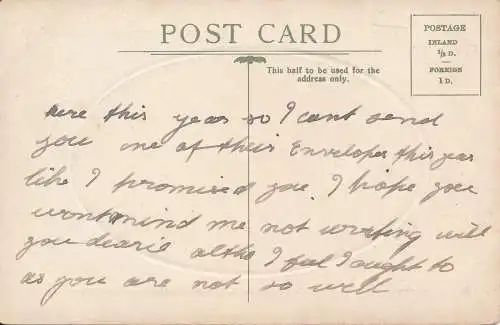 POST CARD
This half to be used for the
address only.
POSTAGE
INLAND
½ D.
FOREIGN
1 D.
here this year so I cant send
you one of their Envelopes this year
like I promised you. I hope you
wont mind me not writing will
you dearie altho I feel I ought to
as you are not so well